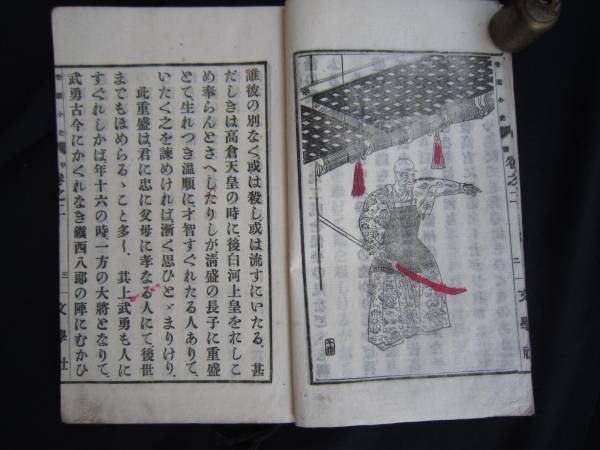 卷之二
二
文學社
誰彼の別なく或は殺し或は流すにいたる、甚
だしきは高倉天皇の時に、後白河上皇をおしこ
め奉らんとさへしたりしが清盛の長子に重盛
とて生れつき溫順に才智すぐれたる人ありて、
いたく之を諫めければ、漸く思ひとゞまりけり、
此重盛は君に忠に父母に孝なる人にて、後世
までもほめらるゝこと多し、其上武勇も人に
すぐれしかば年十六の時、一方の大將となりて、
武勇古今にかくれなき鎭西八郎の陣にむかひ
小史
卷之二
三
文學社